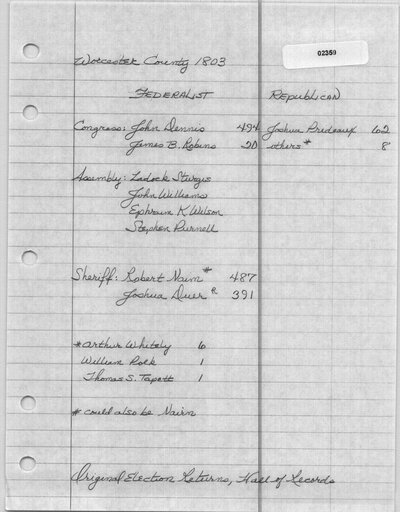 02359
Worcester County 1803
FEDERALIST REPUBLICAN
Congress: John Dennis 494 Joshua Prideaux 62
James B. Robins 20 others* 8
Assembly: Zadock Sturgis
John Williams
Ephraim K Wilson
Stephen Purnell
Sheriff: Robert Naim# 487
Joshua Duer R 391
*Arthur Whitely 6
William Polk 1
Thomas S. 1
# could also be Nairn
Original Election Returns, Hall of Records